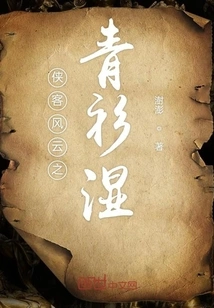 侠客风云之
青衫湿
著
中文网